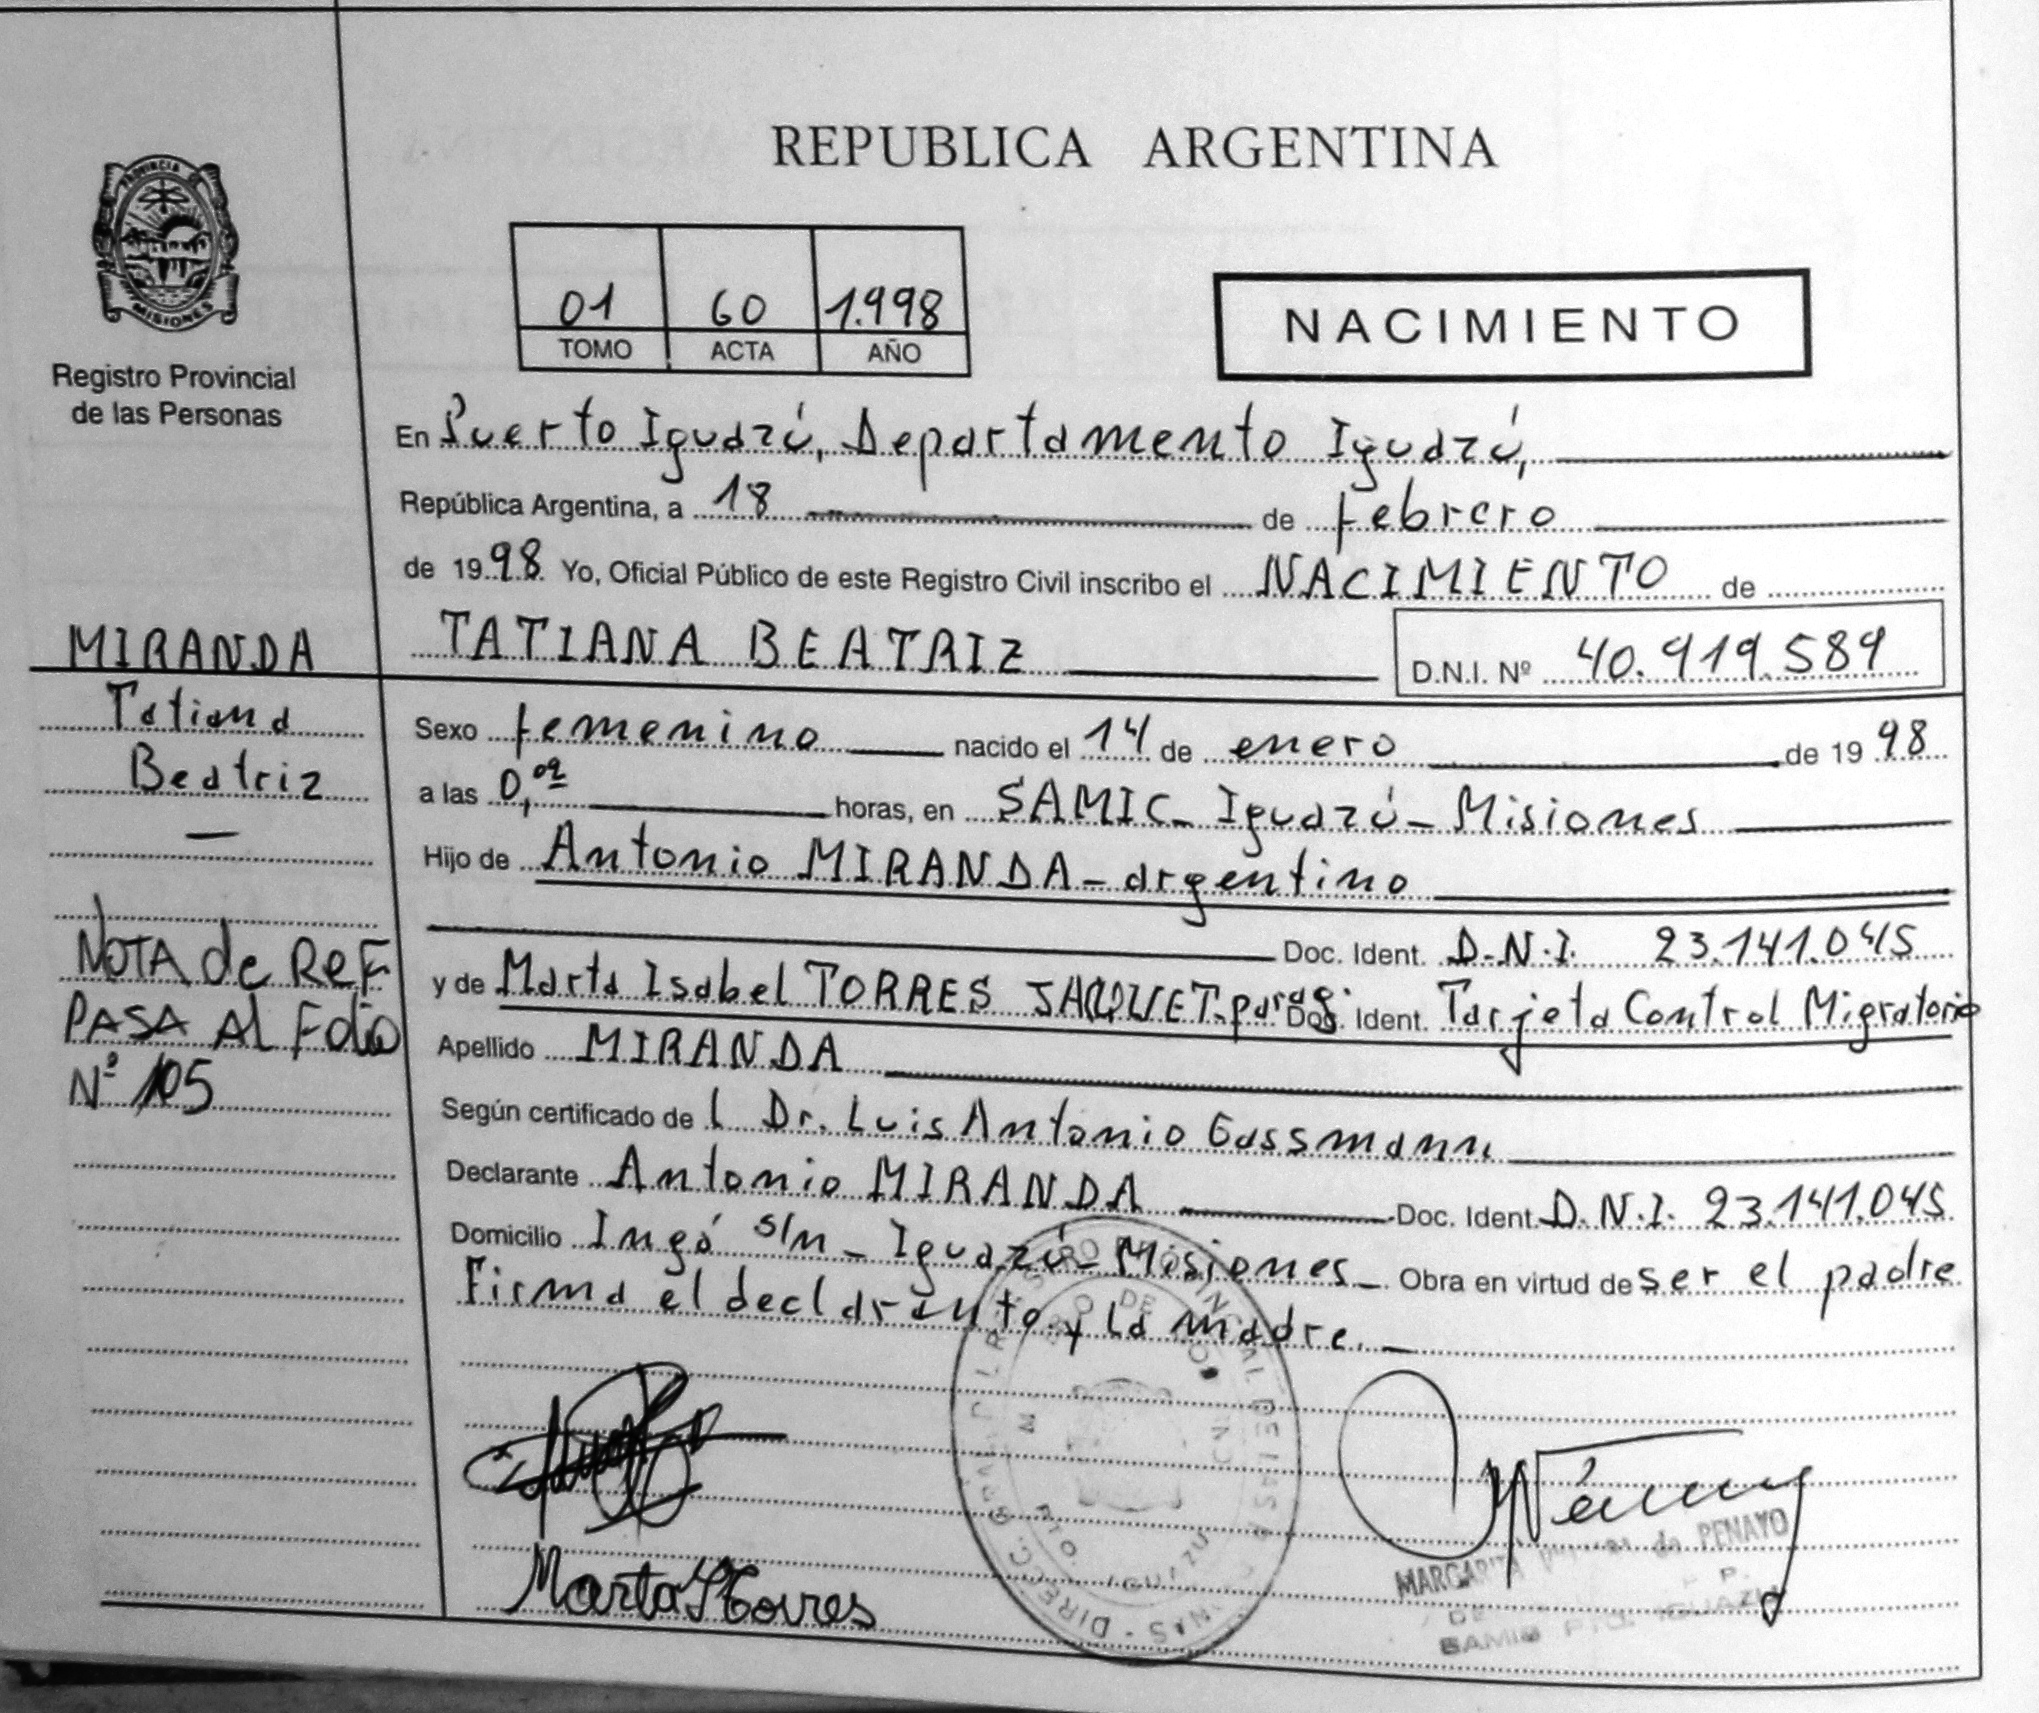 REPUBLICA ARGENTINA
PROVINCIA DE
MISIONES
Registro Provincial
de las Personas
01 60 1.998
TOMO ACTA AÑO
NACIMIENTO
En Puerto Iguazú, Departamento Iguazú,
República Argentina, a 18 de febrero
de 1998 Yo, Oficial Público de este Registro Civil inscribo el NACIMIENTO de
TATIANA BEATRIZ D.N.I. Nº 40.919.589
MIRANDA
Tatiana
Beatriz
—
NOTA de REF
PASA Al Folio
Nº 105
Sexo femenino nacido el 14 de enero de 1998
a las 0, horas, en SAMIC_ Iguazú_ Misiones
Hijo de Antonio MIRANDA_ argentino
Doc. Ident. D.N.I. 23.141.045
y de Marta Isabel TORRES JACQUET_parag. Doc. Ident. Tarjeta Control Migratorio
Apellido MIRANDA
Según certificado de l Dr. Luis Antonio Gassmann
Declarante Antonio MIRANDA Doc. Ident. D.N.I. 23.141.045
Domicilio Ingá s/n _ Iguazú_ Misiones_ Obra en virtud de ser el padre
Firma el declarante y la madre._
Marta I Torres
MARGARITA de PENAYO